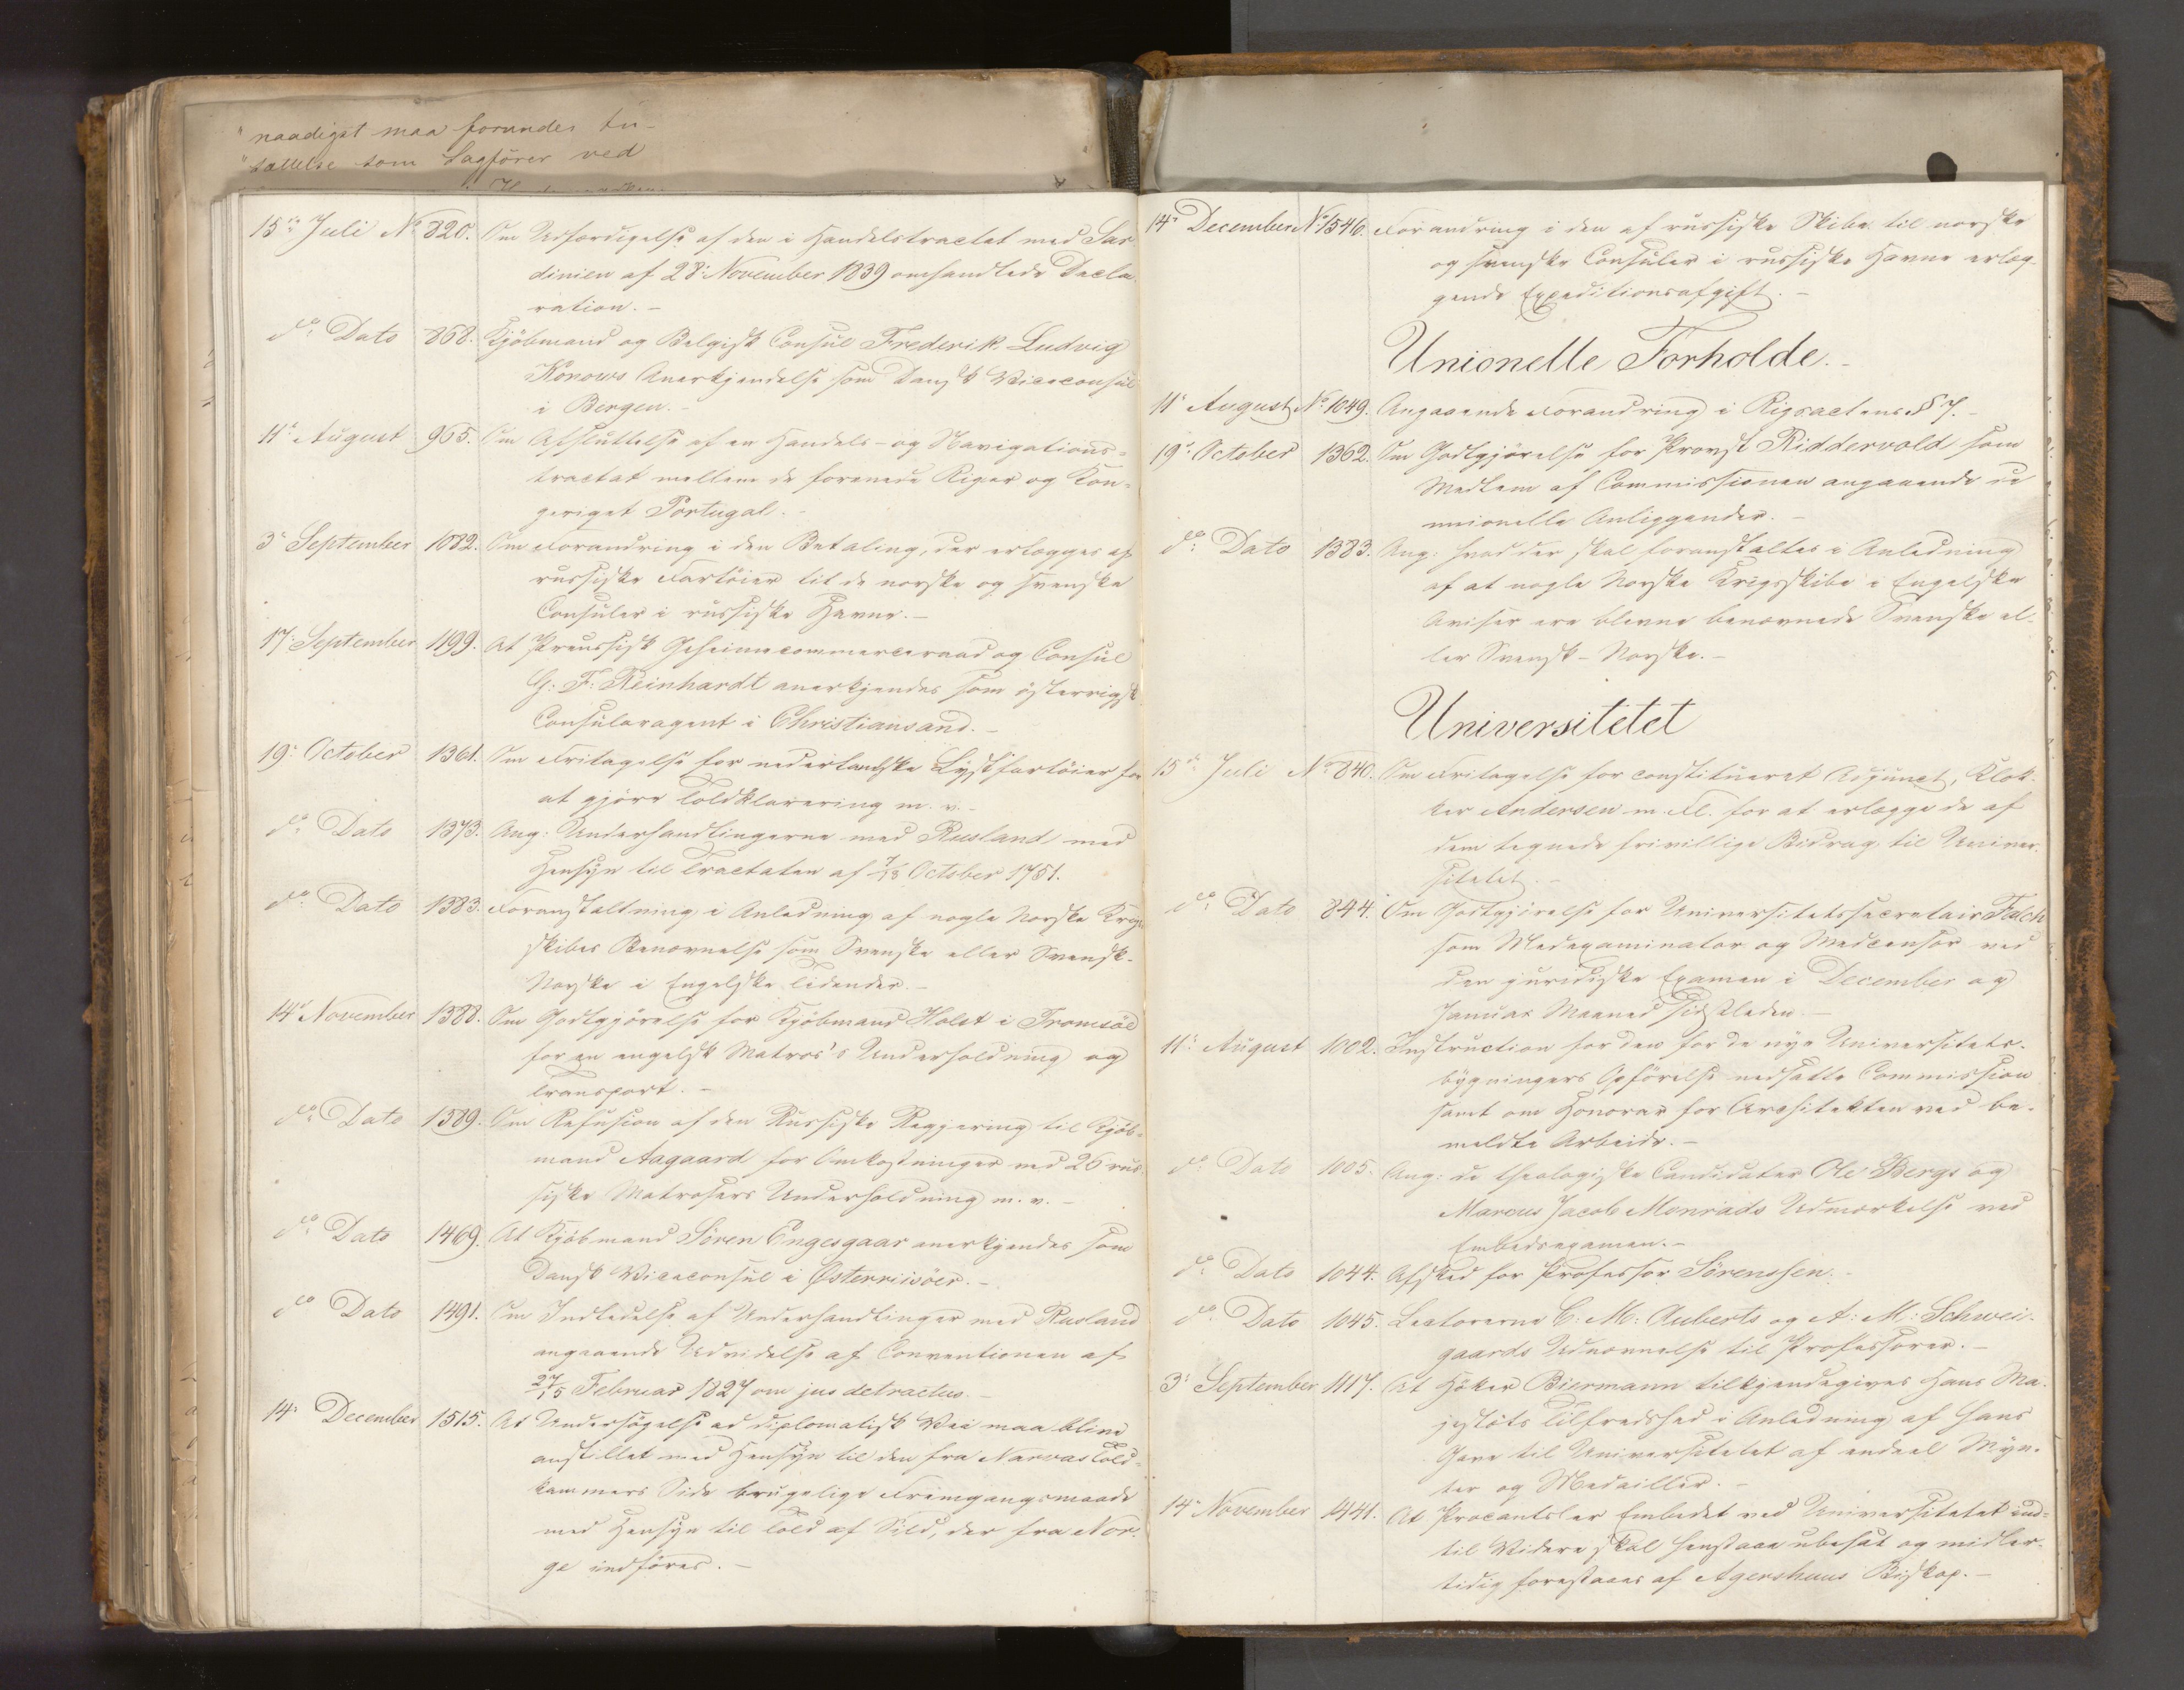 "naadigst maa forundes
"sættelse som Sagfører ved
15de Juli No 820. Om Udfærdigelse af den i Handelstractat med Sar
dinien af 28de November 1839 omhandlede Decla
ration. -
do Dato 868. Kjöbmand og Belgisk Consul Frederik Ludvig
Konows Anerkjendelse som Dansk Viceconsul
i Bergen. -
11te August 965. Om Afsluttelse af en Handels- og Navigations-
tractat mellem de forenede Riger og Kon-
geriget Portugal. -
3de September 1082. Om Forandring i den Betaling, der erlægges af
russiske Fartöier til de norske og svenske
Consuler i russiske Havne. -
17de September 1199. At Preussisk Geheimecommerceraad og Consul
G: F: Reinhardt anerkjendes som österrigsk
Consularagent i Christiansand. -
19de October 1361. Om Fritagelse for nederlandske Lystfartöier for
at gjöre Toldklarering m. v. -
do Dato 1373. Ang: Underhandlingerne med Rusland med
Hensyn til Tractaten af 7/18 October 1751.
do Dato 1383. Foranstaltning i Anledning af nogle Norske Krigs-
skibes Benævnelse som Svenske eller Svensk-
Norske i Engelske Tidender. -
14de November 1388. Om Godtgjörelse for Kjöbmand Holst i Tromsöe
for en engelsk Matros's Underholdning og
Transport. -
do Dato 1389. Om Refusion af den Russiske Regjering til Kjöb-
mand Aagaard for Omkostninger ved 26 rus-
siske Matrosers Underholdning m. v. -
do Dato 1469. At Kjöbmand Sören Engesgaar anerkjendes som
Dansk Viceconsul i Østerriisöer. -
do Dato 1491. Om Indledelse af Underhandlinger med Rusland
angaaende Udvidelse af Conventionen af
27/15 Februar 1827 om jus detractus. -
14de December 1515. At Undersögelse ad diplomatisk Vei maa blive
anstillet med Hensyn til den fra Narvas Told-
kammers Side brugelige Fremgangsmaade
med Hensyn til Told af Sild, der fra Nor-
ge indföres. -
14de December No 1546. Forandring i den af russiske Skibe til norske
og svenske Consuler i russiske Havne erlæg-
gende Expeditionsafgift. -
Unionelle Forholde. -
11te August No 1049. Angaaende Forandring i Rigsactens § 7. -
19de October 1362. Om Godtgjörelse for Provst Riddervold som
Medlem af Commissionen angaaende de
unionelle Anliggender. -
do Dato 1383. Ang: hvad der skal foranstaltes i Anledning
af at nogle Norske Krigsskibe i Engelske
Aviser ere blevne benævnede Svenske el-
ler Svensk-Norske. -
Universitetet
15de Juli No 840. Om Fritagelse for constitueret Adjunct, Klok-
ker Andersen m. Fl. for at erlægge de af
dem tegnede frivillige Bidrag til Univer-
sitetet. -
do Dato 844. Om Godtgjörelse for Universitetssecretair Falch
som Medexaminator og Medcensor ved
den juridiske Examen i December og
Januar Maaned sidstleden. -
11te August 1002. Instruction for den for de nye Universitets-
bygningers Opförelse nedsatte Commission
samt om Honorar for Architekten ved be-
meldte Arbeide. -
do Dato 1005. Ang: de theologiske Candidater Ole Bergs og
Marcus Jacob Monrads Udmærkelse ved
Embedsexamen. -
do Dato 1044. Afsked for Professor Sörenssen. -
do Dato 1045. Lectorerne C: M: Auberts og A: M: Schwei-
gaards Udnævnelse til Professorer. -
3de September 1117. At Höker Biermann tilkjendegives Hans Ma-
jestæts Tilfredshed i Anledning af hans
Gave til Universitetet af endeel Myn-
ter og Medailler. -
14de November 1441. At Procantsler Embedet ved Universitetet ind-
til Videre skal henstaae ubesat og midler-
tidig forestaaes af Agershuus Biskop. -